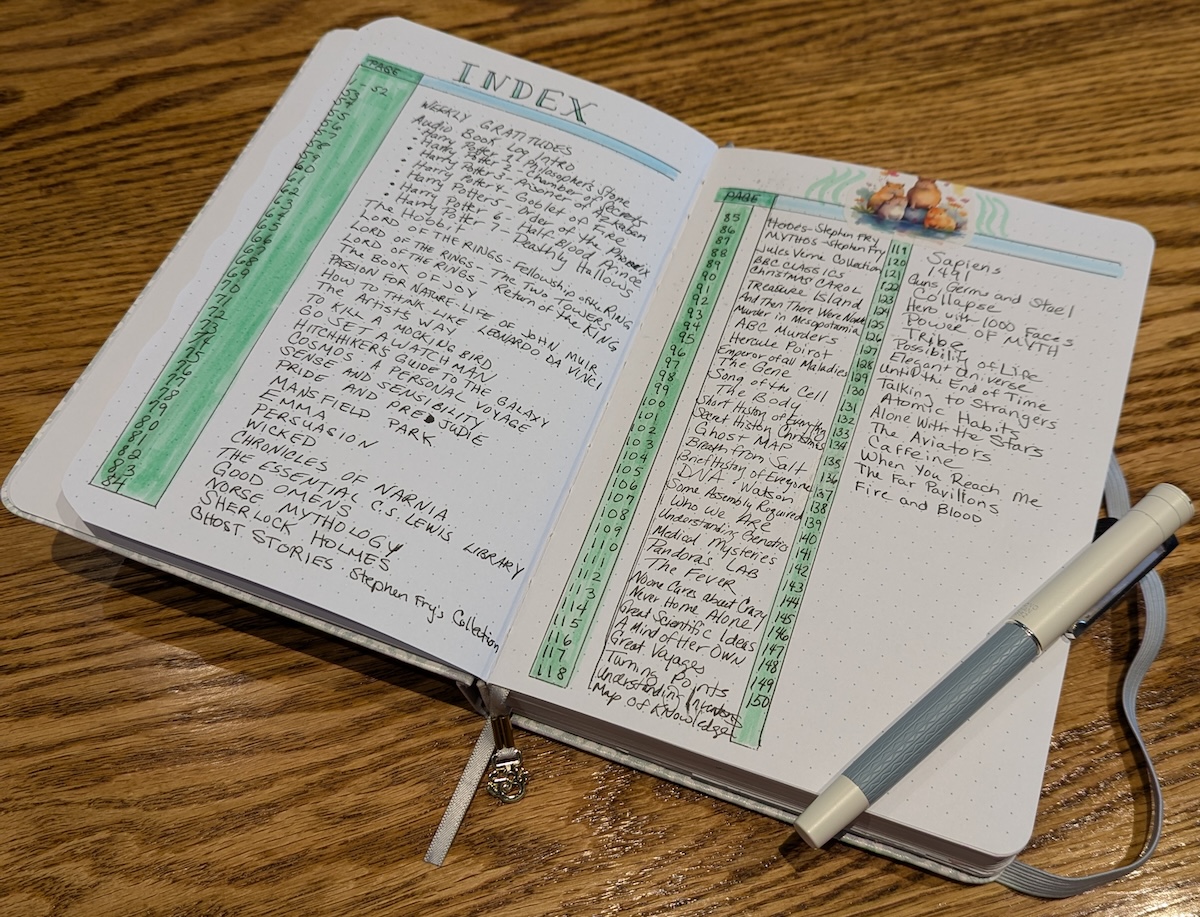 INDEX
PAGE
1 - 52 WEEKLY GRATITUDES
53 Audio Book Log Intro
54 • Harry Potter 1: Philosophers Stone
55 • Harry Potter 2 - Chamber of Secrets
56 • Harry Potter 3 - Prisoner of Azkaban
57 Harry Potter 4 - Goblet of Fire
58 • Harry Potter 5 - Order of the Phoenix
59 • Harry Potter 6 - Half-Blood Prince
60 Harry Potter 7 - Deathly Hallows
The Hobbit
LORD OF THE RINGS - Fellowship of the RING
LORD OF THE RINGS - The TWO TOWERS
LORD OF THE RINGS - Return of the KING
The BOOK OF JOY
PASSION FOR NATURE, LIFE OF JOHN MUIR
HOW TO THINK LIKE LEONARDO DA VINCI
The Artists WAY
TO KILL A MOCKING BIRD
GO SET A WATCH MAN
HITCHHIKERS GUIDE TO THE GALAXY
COSMOS A PERSONAL VOYAGE
SENSE AND SENSIBILITY
PRIDE AND PREDJUDIE
MANSFIELD PARK
EMMA
PERSUASION
WICKED
CHRONICLES OF NARNIA
THE ESSENTIAL C.S. LEWIS LIBRARY
GOOD OMENS
NORSE MYTHOLOGY
SHERLOCK HOLMES
GHOST STORIES Stephen Fry's Collection
PAGE
85 Heroes - Stephen FRY
86 MYTHOS - Stephen Fry
87 Jules Verne Collection
88 BBC CLASSICS
89 CHRISTMAS CAROL
90 TREASURE ISLAND
91 And Then There Were None
92 Murder in Mesopotamia
93 ABC MURDERS
94 Hercule Poirot
95 Emperor of all Maladies
96 The Gene
97 Song of the Cell
98 The Body
99 Short History of Everything
100 Secret History Christmas
101 GHOST MAP
102 Breath from Salt
103 Brief History of Everyone
104 DNA Watson
105 Some Assembly Required
106 Who We ARE
107 Understanding Genetics
108 Medical Mysteries
109 Pandora's LAB
110 The FEVER
111 Noone Cares about Crazy
112 Never Home Alone
113 Great Scientific Ideas
114 A Mind of Her OWN
115 Great Voyages
116 Turning Points
117 Understanding
118 Map of Knowledge
119 Sapiens
120 1491
121 Guns Germs and Steel
122 Collapse
123 Hero with 1000 Faces
124 POWER OF MYTH
125 Tribe
126 Possibility of Life
127 Elegant Universe
128 Until the End of Time
129 Talking to Strangers
130 Atomic Habits
131 Alone With the Stars
132 The Aviators
133 Caffeine
134 When You Reach Me
135 The Far Pavilions
136 Fire and Blood
137
138
139
140
141
142
143
144
145
146
147
148
149
150